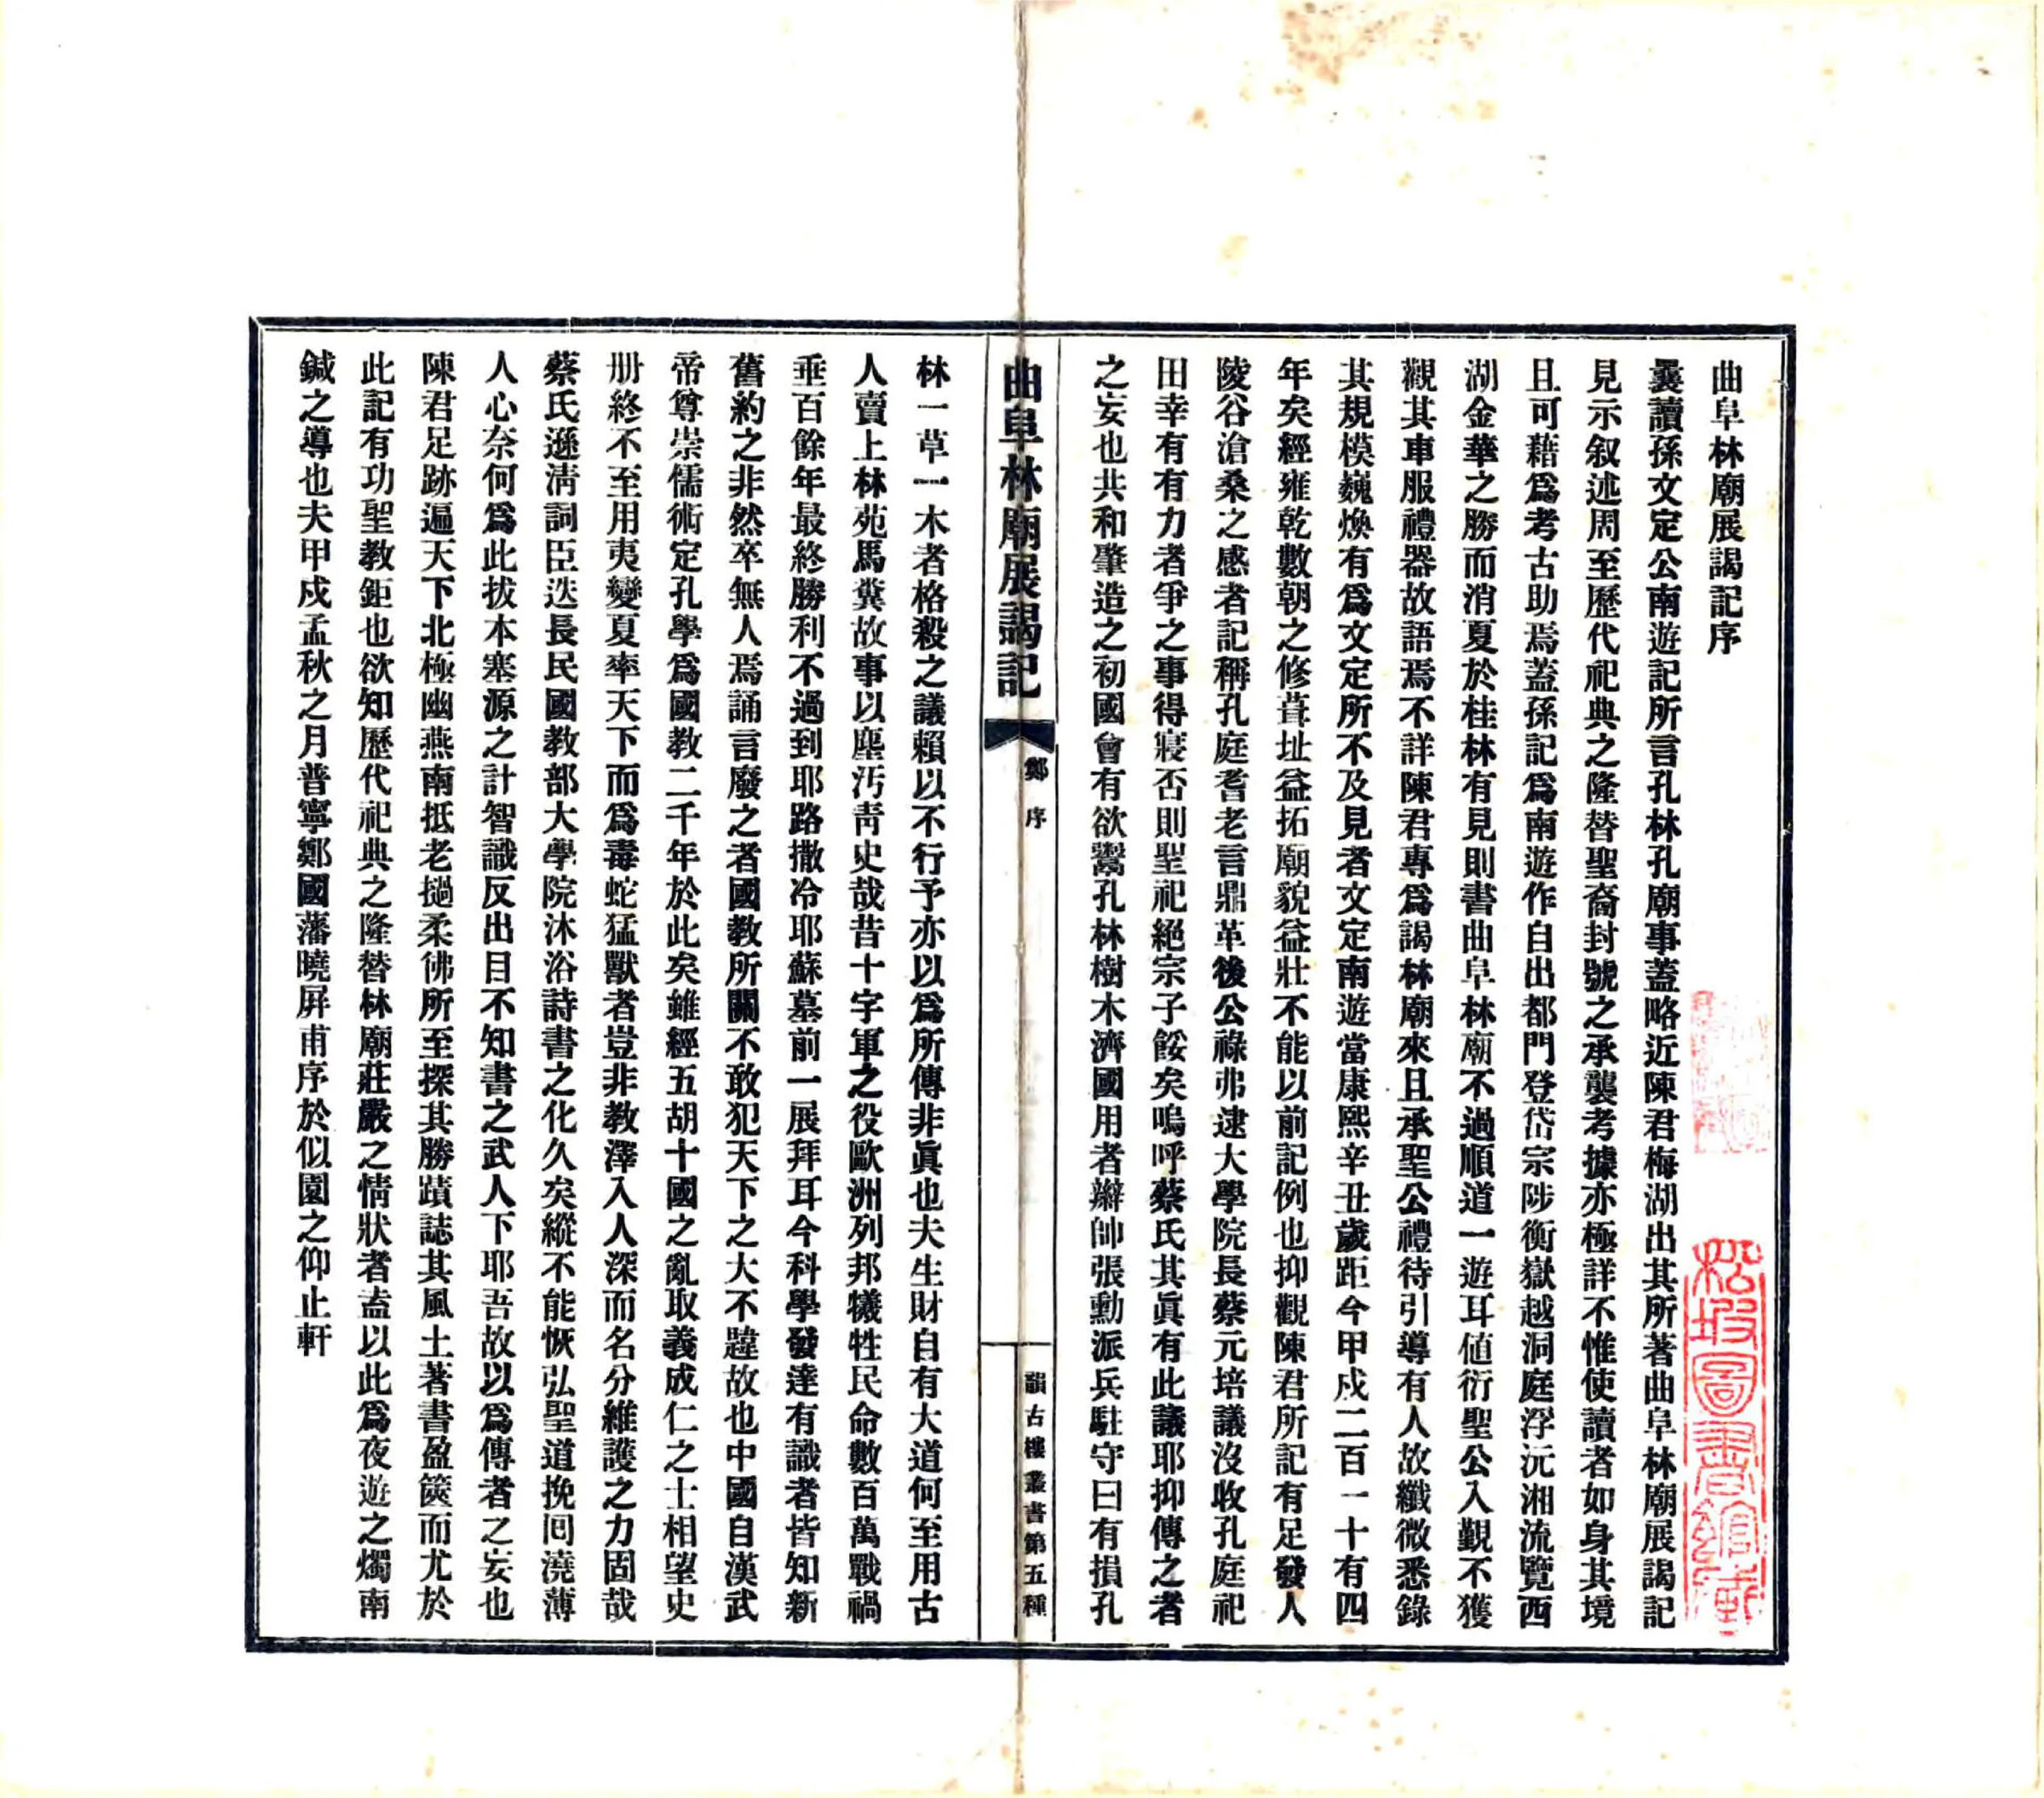 曲阜林廟展謁記序
曩讀孫文定公南遊記所言孔林孔廟事蓋略近陳君梅湖出其所著曲阜林廟展謁記
見示叙述周至歷代祀典之隆替聖裔封號之承襲考據亦極詳不惟使讀者如身其境
且可藉爲考古助焉蓋孫記爲南遊作自出都門登岱宗陟衡嶽越洞庭浮沅湘流覽西
湖金華之勝而消夏於桂林有見則書曲阜林廟不過順道一遊耳値衍聖公入覲不獲
觀其車服禮器故語焉不詳陳君專爲謁林廟來且承聖公禮待引導有人故纖微悉錄
其規模巍煥有爲文定所不及見者文定南遊當康熙辛丑歲距今甲戍二百一十有四
年矣經雍乾數朝之修葺址益拓廟貌益壯不能以前記例也抑觀陳君所記有足發人
陵谷滄桑之感者記稱孔庭耆老言鼎革後公祿弗逮大學院長蔡元培議沒收孔庭祀
田幸有有力者爭之事得寢否則聖祀絕宗子餒矣嗚呼蔡氏其眞有此議耶抑傳之者
之妄也共和肇造之初國會有欲鬻孔林樹木濟國用者辮帥張勳派兵駐守曰有損孔
曲阜林廟展謁記
鄭序
韻古樓叢書第五種
林一草一木者格殺之議賴以不行予亦以爲所傳非眞也夫生財自有大道何至用古
人賣上林苑馬糞故事以塵汚靑史哉昔十字軍之役歐洲列邦犧牲民命數百萬戰禍
垂百餘年最終勝利不過到耶路撒冷耶蘇墓前一展拜耳今科學發達有識者皆知新
舊約之非然卒無人焉誦言廢之者國教所關不敢犯天下之大不韙故也中國自漢武
帝尊崇儒術定孔學爲國教二千年於此矣雖經五胡十國之亂取義成仁之士相望史
册終不至用夷變夏率天下而爲毒蛇猛獸者豈非教澤入人深而名分維護之力固哉
蔡氏遜淸詞臣迭長民國教部大學院沐浴詩書之化久矣縱不能恢弘聖道挽囘澆薄
人心奈何爲此拔本塞源之計智識反出目不知書之武人下耶吾故以爲傳者之妄也
陳君足跡遍天下北極幽燕南抵老撾柔彿所至探其勝蹟誌其風土著書盈篋而尤於
此記有功聖教鉅也欲知歷代祀典之隆替林廟莊嚴之情狀者盍以此爲夜遊之燭南
鍼之導也夫甲戍孟秋之月普寧鄭國藩曉屏甫序於似園之仰止軒
松坡圖書館藏